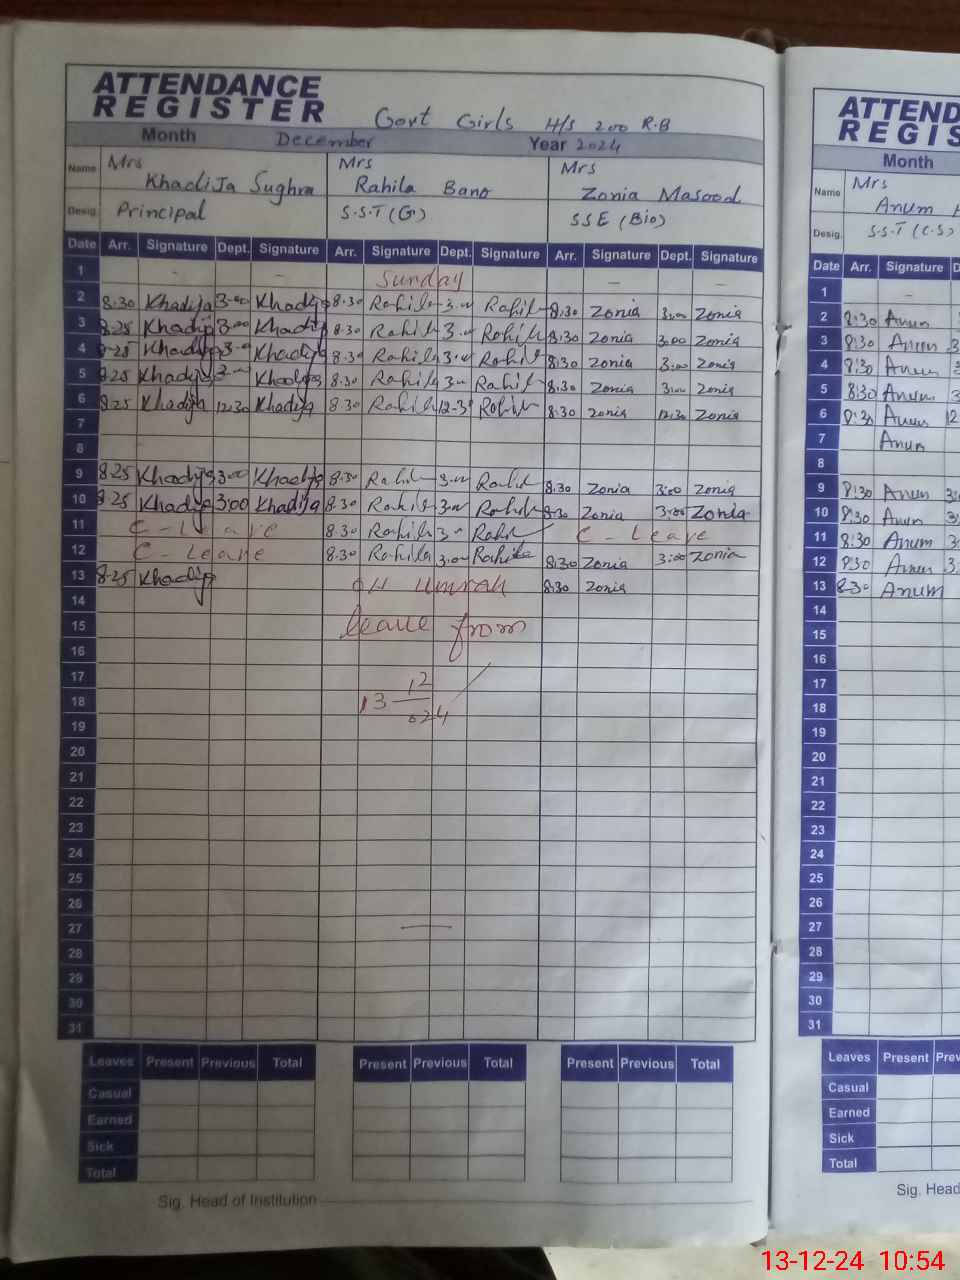 ATTENDANCE
REGISTER
Govt Girls H/S 200 R.B
Month December Year 2024
Name Mrs Khadija Sughra Mrs Rahila Bano Mrs Zonia Masood
Desig. Principal S.S.T (G) SSE (Bio)
Date Arr. Signature Dept. Signature Arr. Signature Dept. Signature Arr. Signature Dept. Signature
1 - - Sunday - -
2 8.30 Khadija 3.00 Khadija 8.30 Rahila 3.00 Rahila 8:30 Zonia 3:00 Zonia
3 8.25 Khadija 3.00 Khadija 8.30 Rahila 3.00 Rahila 8:30 Zonia 3:00 Zonia
4 8.25 Khadija 3.00 Khadija 8.30 Rahila 3.00 Rahila 8:30 Zonia 3:00 Zonia
5 8.25 Khadija 3.00 Khadija 8.30 Rahila 3.00 Rahila 8:30 Zonia 3:00 Zonia
6 8.25 Khadija 12.30 Khadija 8.30 Rahila 12.30 Rahila 8:30 Zonia 12:30 Zonia
7
8
9 8.25 Khadija 3.00 Khadija 8.30 Rahila 3.00 Rahila 8.30 Zonia 3:00 Zonia
10 8.25 Khadija 3:00 Khadija 8.30 Rahila 3.00 Rahila 8:30 Zonia 3:00 Zonia
11 C - Leave 8.30 Rahila 3.00 Rahila C - Leave
12 C - Leave 8.30 Rahila 3.00 Rahila 8:30 Zonia 3:00 Zonia
13 8.25 Khadija on Umrah 8:30 Zonia
14
15 leave from
16
17
18 13 12 024
19
20
21
22
23
24
25
26
27
28
29
30
31
Leaves Present Previous Total Present Previous Total Present Previous Total
Casual
Earned
Sick
Total
Sig. Head of Institution
ATTEND
REGIS
Month
Name Mrs Anum
Desig. S.S.T (C.S)
Date Arr. Signature
1 -
2 8:30 Anum
3 8:30 Anum
4 8:30 Anum
5 8:30 Anum
6 8:30 Anum 12
7 Anum
8
9 8:30 Anum
10 8:30 Anum
11 8:30 Anum
12 8:30 Anum
13 8:30 Anum
14
15
16
17
18
19
20
21
22
23
24
25
26
27
28
29
30
31
Leaves Present Prev
Casual
Earned
Sick
Total
Sig. Head
13-12-24 10:54